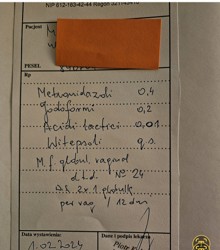 NIP 812-183-42-44 Regon
Pacjent
PESEL
Rp
Metronidazoli 0,4
Jodoformi 0,2
Acidi lactici 0,01
Witepsoli q.s.
M.f. globul vaginal
d.t.d. № 24
D.S. 2x1 globulkę
per vag / 12 dni
Data wystawienia: Data i podpis lekarza
1.02.2024